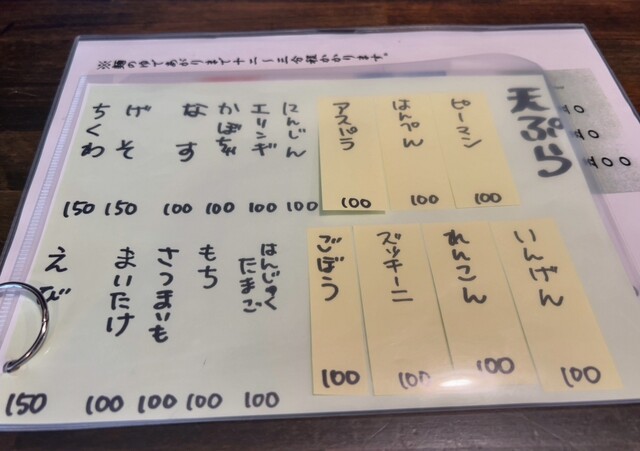 天ぷら
ピーマン 100
はんぺん 100
アスパラ 100
にんじん 100
エリンギ 100
かぼちゃ 100
なす 100
げそ 150
ちくわ 150
いんげん 100
れんこん 100
ズッキーニ 100
ごぼう 100
はんじゅくたまご 100
もち 100
さつまいも 100
まいたけ 100
えび 150
※麺のゆであがりまで十二～三分程かかります。